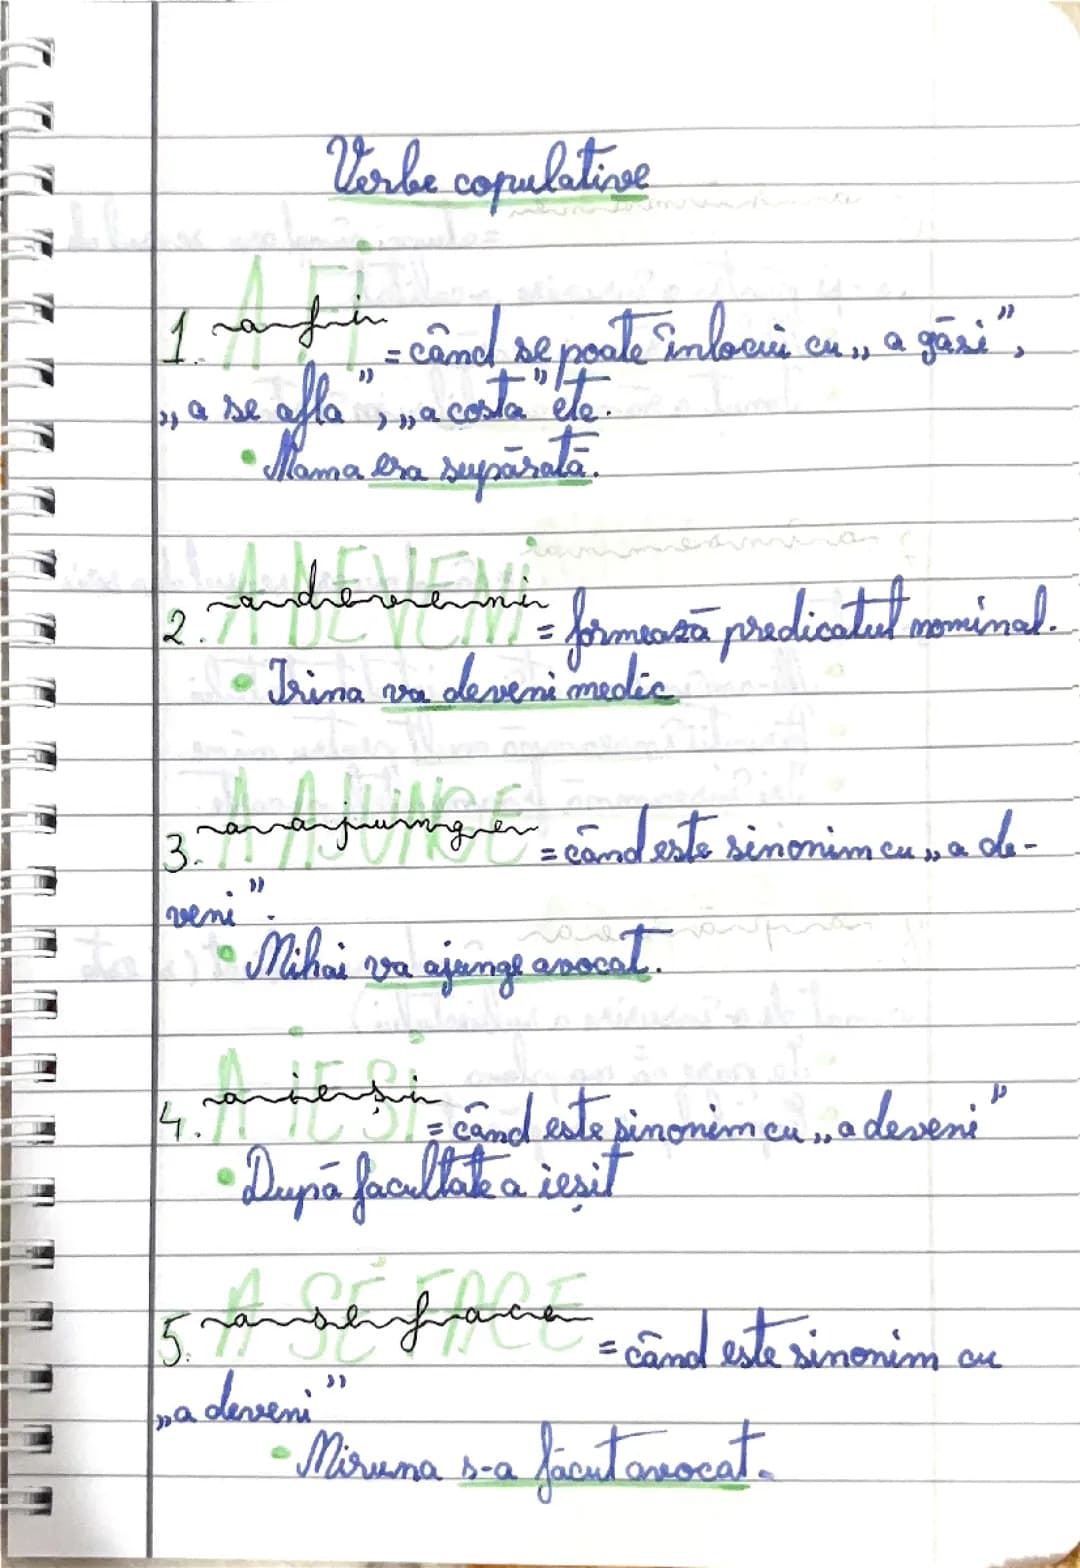 Verbe copulative
1. a fi A FI = când se poate înlocui cu „a găsi”,
„a se afla”, „a costa” etc.
• Mama era supărată.
2. a deveni A DEVENI = formează predicatul nominal.
• Irina va deveni medic
3. a ajunge A AJUNGE = când este sinonim cu „a de-
veni”.
• Mihai va ajunge avocat.
4. a ieși A IEȘI = când este sinonim cu „a deveni”
• După facultate a ieșit
5. a se face A SE FACE = când este sinonim cu
„a deveni”
• Miruna s-a făcut avocat.